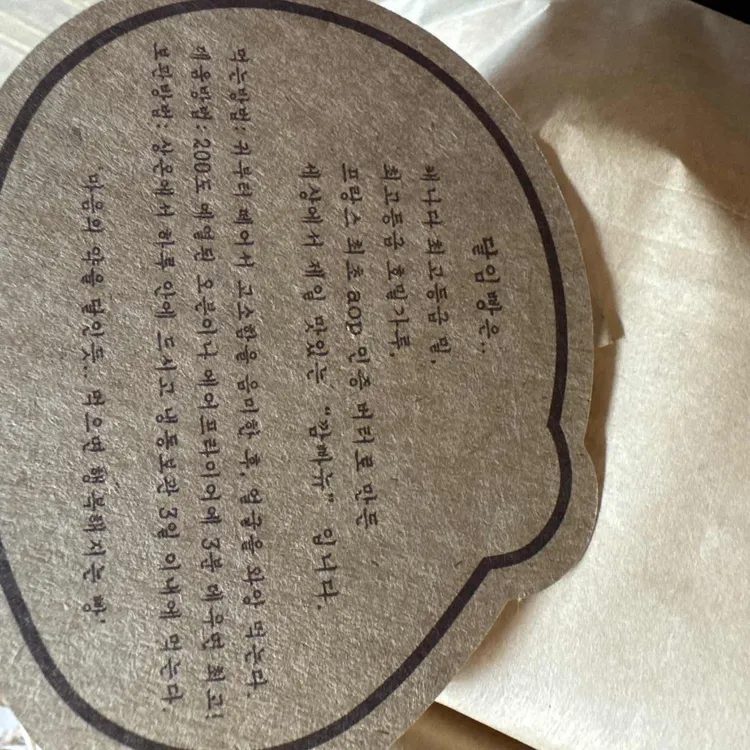 달임빵은..
캐나다 최고등급 밀,
최고등급 호밀가루,
프랑스 최초 aop 인증 버터로 만든
세상에서 제일 맛있는 "깜빠뉴" 입니다.
먹는방법: 귀부터 떼어서 고소함을 음미한 후, 얼굴을 와앙 먹는다.
데움방법: 200도 예열된 오븐이나 에어프라이어에 3분 데우면 최고!
보관방법: 상온에서 하루 안에 드시고 냉동보관 3일 이내에 먹는다.
'마음의 약을 달인듯.. 먹으면 행복해지는 빵'